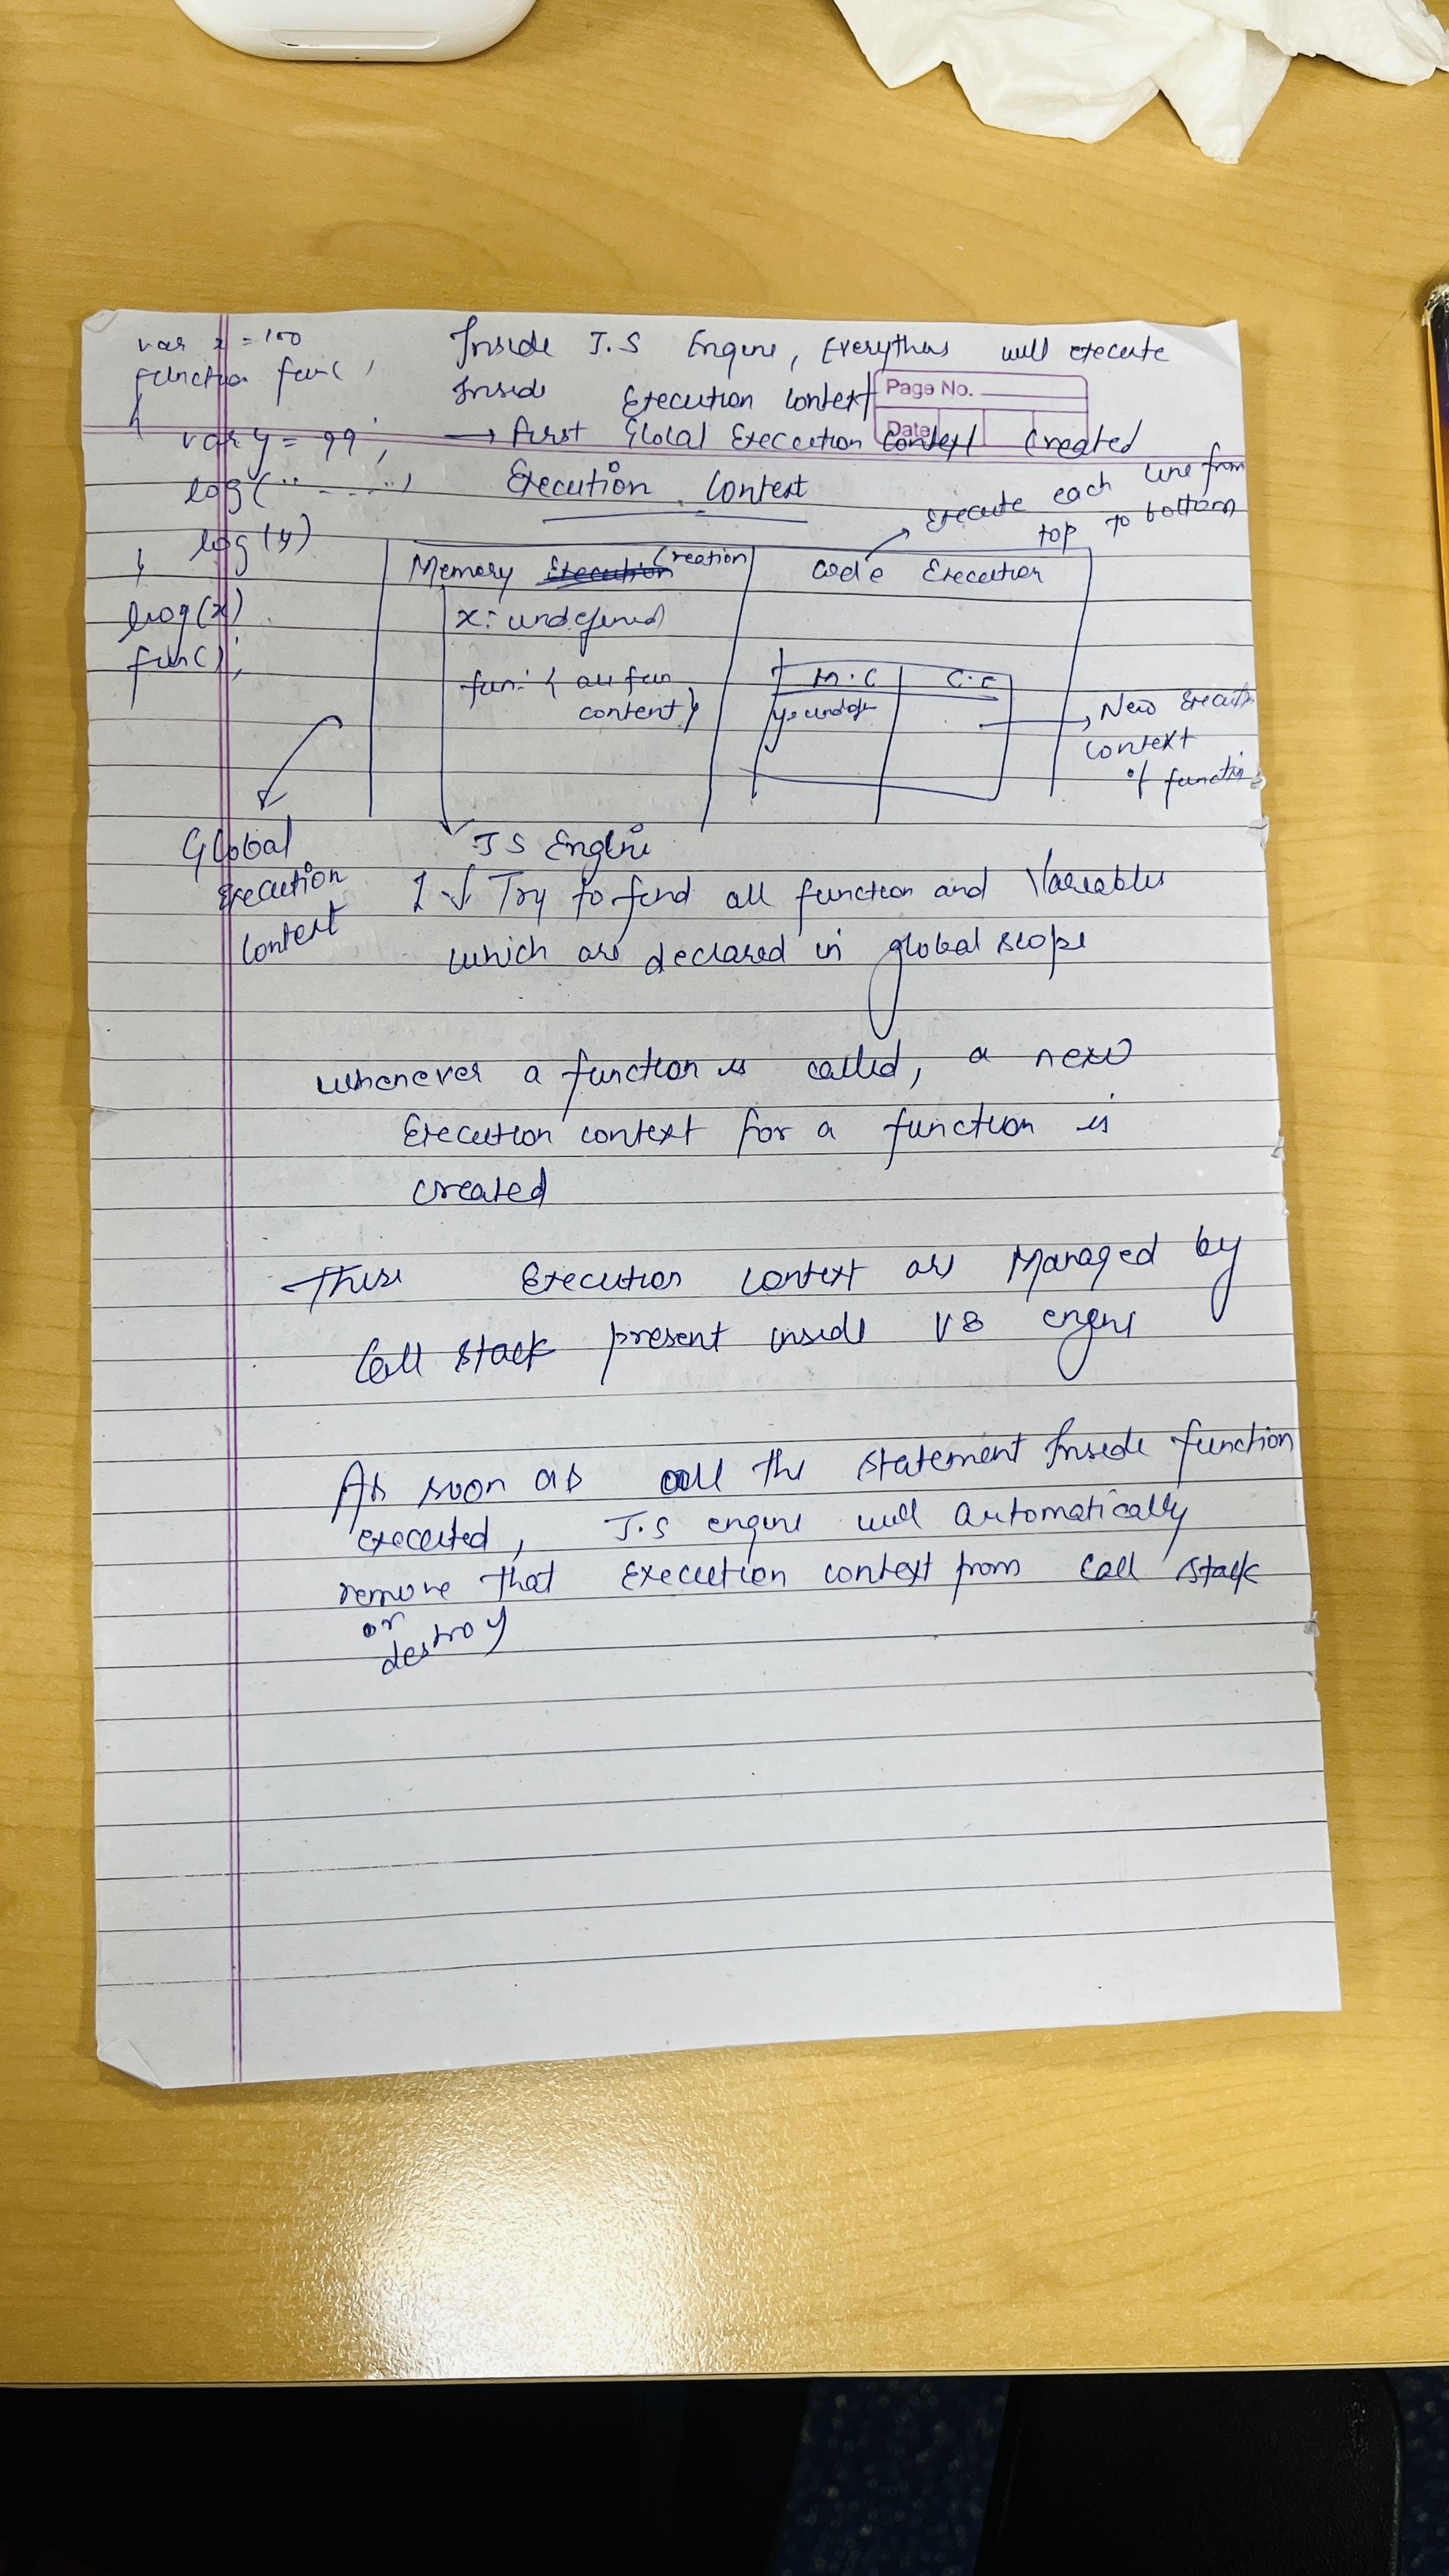 var x = 100
function fun( )
{
var y = 99;
log(".. ----..")
log(y)
}
log(x)
fun();
Inside J.S Engine, Everything will execute
Inside Execution Context
Page No.
Date
→ First Global Execution Context Created
Execution Context
Execute each line from
top to bottom
Memory Execution Creation
Code Execution
x: undefined
fun: { all fun
content}
M.C C.E
y: undef
New Execution
Context
of function
Global
Execution
Context
JS Engine
Try to find all function and Variables
which are declared in global scope
whenever a function is called, a new
Execution context for a function is
created
These Execution Context are Managed by
Call Stack present inside V8 engine
As soon as all the statement Inside function
executed, J.S engine will automatically
remove that Execution context from call stack
or
destroy